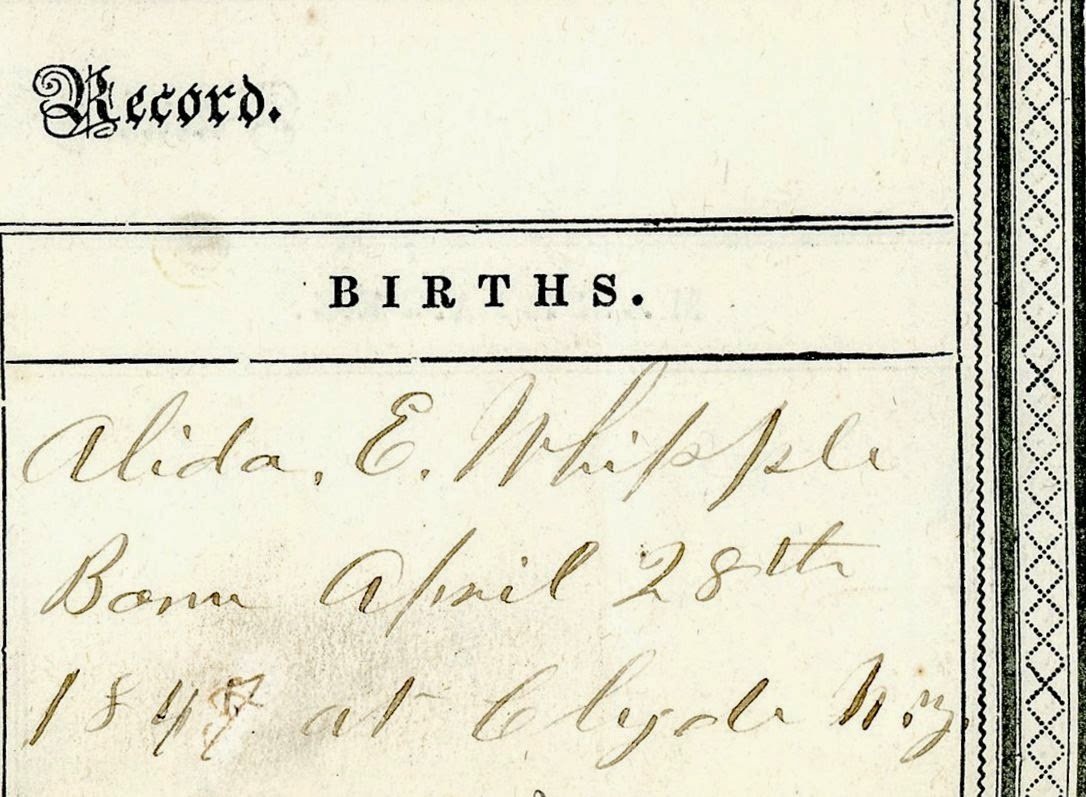 Record.
BIRTHS.
Alida. E. Whipple
Born April 28th
at Clyde N.y.